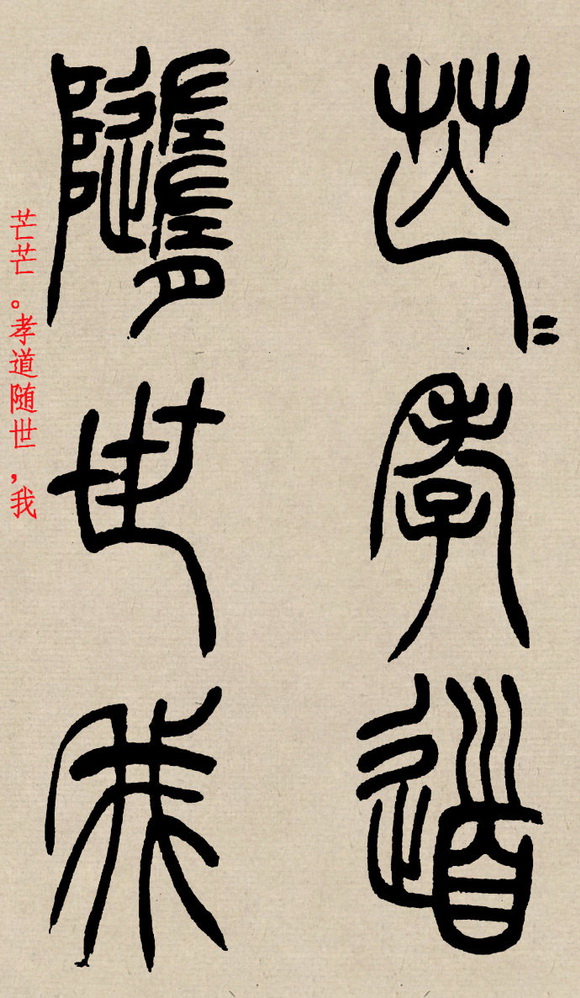 芒〻孝道
隨世我
芒芒。孝道随世，我